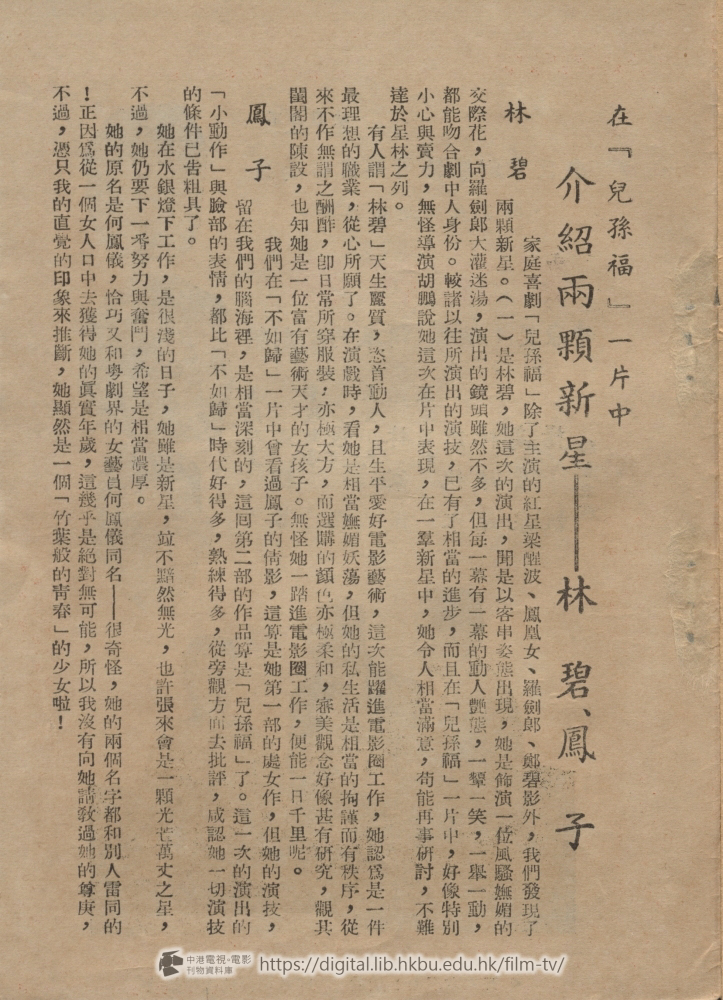 在『兒孫福』一片中
介紹兩顆新星——林碧、鳳子
家庭喜劇「兒孫福」除了主演的紅星梁醒波、鳳凰女、羅劍郎、鄭碧影外，我們發現了
林碧 兩顆新星。（一）是林碧，她這次的演出，聞是以客串姿態出現，她是飾演一位風騷嫵媚的
交際花，向羅劍郎大灌迷湯，演出的鏡頭雖然不多，但每一幕有一幕的動人艷態，一顰一笑，一舉一動，
都能吻合劇中人身份。較諸以往所演出的演技，已有了相當的進步，而且在「兒孫福」一片中，好像特別
小心與賣力，無怪導演胡鵬說她這次在片中表現，在一羣新星中，她令人相當滿意，苟能再事研討，不難
達於星林之列。
有人謂「林碧」天生麗質，恣首動人，且生平愛好電影藝術，這次能躍進電影圈工作，她認爲是一件
最理想的職業，從心所願了。在演戲時，看她是相當嫵媚妖蕩，但她的私生活是相當的拘謹而有秩序，從
來不作無謂之酬酢，卽日常所穿服裝，亦極大方，而選購的顏色亦極柔和，審美觀念好像甚有研究，觀其
閨閣的陳設，也知她是一位富有藝術天才的女孩子。無怪她一踏進電影圈工作，便能一日千里呢。
我們在「不如歸」一片中曾看過鳳子的倩影，這算是她第一部的處女作，但她的演技，
鳳子 留在我們的腦海裡，是相當深刻的，這回第二部的作品算是「兒孫福」了。這一次的演出的
「小動作」與臉部的表情，都比「不如歸」時代好得多，熟練得多，從旁觀方面去批評，咸認她一切演技
的條件已告粗具了。
她在水銀燈下工作，是很淺的日子，她雖是新星，竝不黯然無光，也許張來會是一顆光芒萬丈之星，
不過，她仍要下一番努力與奮鬥，希望是相當濃厚。
她的原名是何鳳儀，恰巧又和粵劇界的女藝員何鳳儀同名——很奇怪，她的兩個名字都和別人雷同的
！正因爲從一個女人口中去獲得她的眞實年歲，這幾乎是絕對無可能，所以我沒有向她請敎過她的尊庚，
不過，憑只我的直覺的印象來推斷，她顯然是一個「竹葉般的靑春」的少女啦！
中港電視·電影
刊物資料庫
https://digital.lib.hkbu.edu.hk/film-tv/